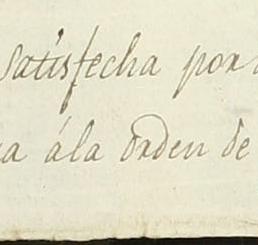 Satisfecha por
a á la orden de